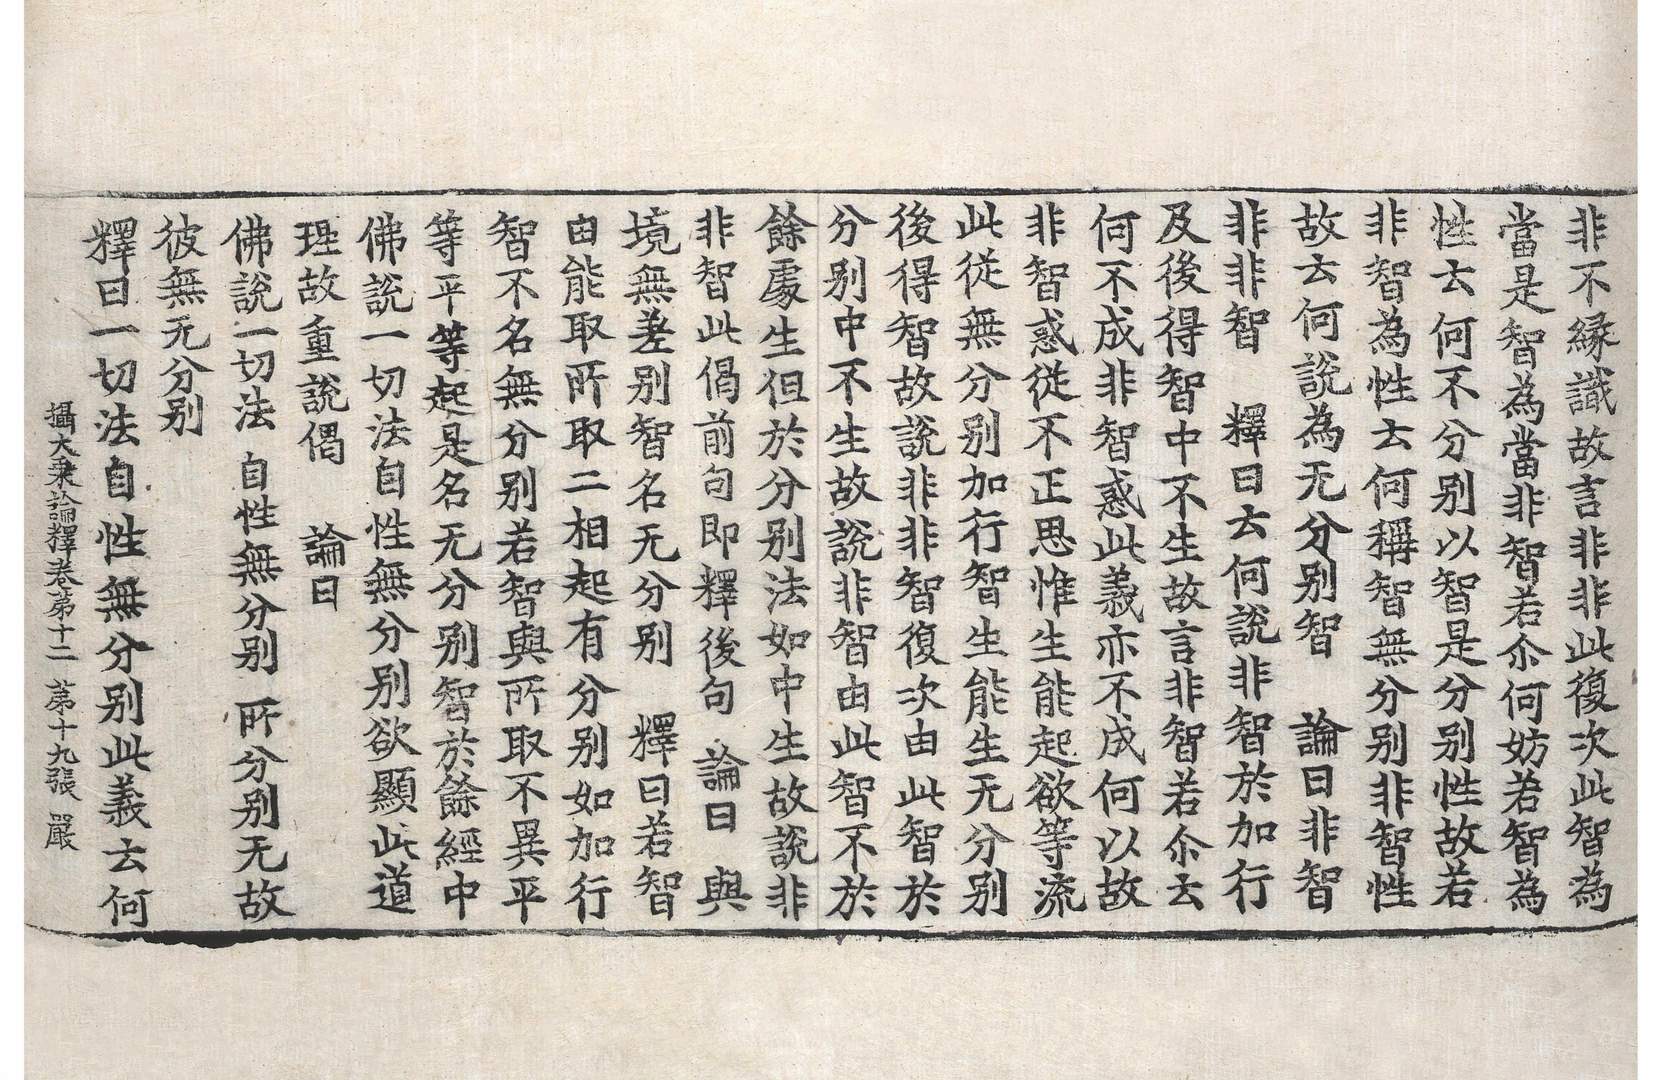 非不縁識故言非非此復次此智為
當是智為當非智若尒何妨若智為
性云何不分別以智是分別性故若
非智為性云何稱智無分別非智性
故云何說為无分別智　論曰非智
非非智　釋曰云何說非智於加行
及後得智中不生故言非智若尒云
何不成非智惑此義亦不成何以故
非智惑從不正思惟生能起欲等流
此從無分別加行智生能生无分別
後得智故說非非智復次由此智於
分別中不生故說非智由此智不於
餘處生但於分別法如中生故說非
非智此偈前句即釋後句　論曰　與
境無差別智名无分別　釋曰若智
由能取所取二相起有分別如加行
智不名無分別若智與所取不異平
等平等起是名无分別智於餘經中
佛說一切法自性無分別欲顯此道
理故重說偈　論曰
佛說一切法　自性無分別　所分別无故
彼無无分別
釋曰一切法自性無分別此義云何
攝大乘論釋卷第十二　第十九張　嚴